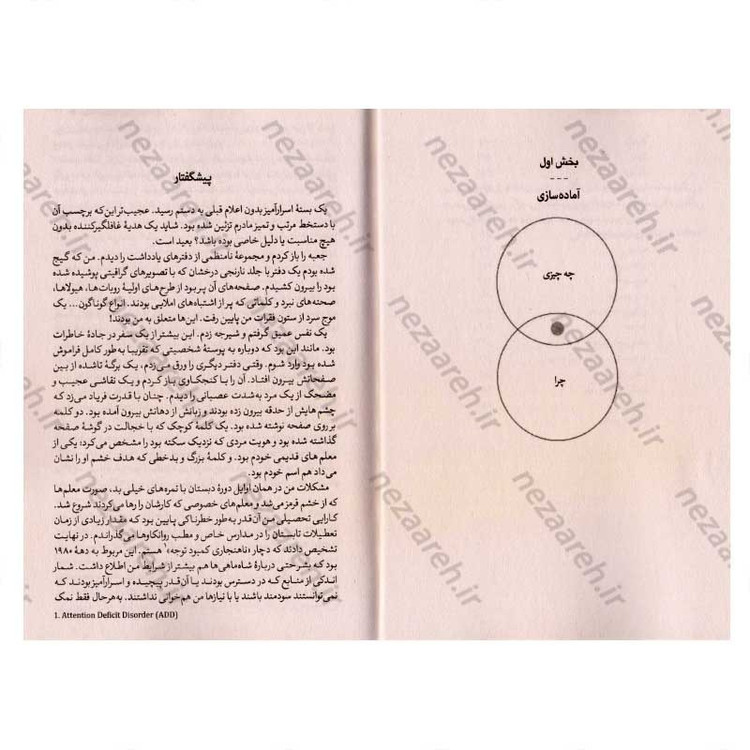 بخش اول
---
آماده‌سازی
چه چیزی
چرا
پیشگفتار
یک بستهٔ اسرارآمیز بدون اعلام قبلی به دستم رسید. عجیب‌تر این‌که برچسب آن
با دستخط مرتب و تمیز مادرم تزئین شده بود. شاید یک هدیهٔ غافلگیرکننده بدون
هیچ مناسبت یا دلیل خاصی بوده باشد؟ بعید است.
جعبه را باز کردم و مجموعهٔ نامنظمی از دفترهای یادداشت را دیدم. من که گیج
شده بودم یک دفتر با جلد نارنجی درخشان که با تصویرهای گرافیتی پوشیده شده
بود را بیرون کشیدم. صفحه‌های آن پر بود از طرح‌های اولیهٔ روبات‌ها، هیولاها،
صحنه‌های نبرد و کلماتی که پر از اشتباه‌های املایی بودند. انواع گوناگون... یک
موج سرد از ستون فقرات من پایین رفت. این‌ها متعلق به من بودند!
یک نفس عمیق گرفتم و شیرجه زدم. این بیشتر از یک سفر در جادهٔ خاطرات
بود. مانند این بود که دوباره به پوستهٔ شخصیتی که تقریبا به‌طور کامل فراموش
شده بود وارد شوم. وقتی دفتر دیگری را ورق می‌زدم، یک برگهٔ تاشده از بین
صفحاتش بیرون افتاد. آن را با کنجکاوی باز کردم و یک نقاشی عجیب و
مضحک از یک مرد به‌شدت عصبانی را دیدم. چنان با قدرت فریاد می‌زد که
چشم‌هایش از حدقه بیرون زده بودند و زبانش از دهانش بیرون آمده بود. دو کلمه
بر روی صفحه نوشته شده بود. یک کلمهٔ کوچک که با خجالت در گوشهٔ صفحه
گذاشته شده بود و هویت مردی که نزدیک سکته بود را مشخص می‌کرد؛ یکی از
معلم‌های قدیمی خودم. و کلمه‌ای بزرگ و بدخطی که هدف خشم او را نشان
می‌داد هم اسم خودم بود.
مشکلات من در همان اوایل دورهٔ دبستان با نمره‌های خیلی بد، صورت معلم‌ها
که از خشم قرمز می‌شد و معلم‌های خصوصی که کارشان را رها می‌کردند شروع شد.
کارایی تحصیلی من آن‌قدر به‌طور خطرناکی پایین بود که مقدار زیادی از زمان
تعطیلات تابستان را در مدارس خاص و مطب روانکاوها می‌گذراندم. در نهایت
تشخیص دادند که دچار «ناهنجاری کمبود توجه»۱ هستم. این مربوط به دههٔ ۱۹۸۰
بود که بشر حتی دربارهٔ شاه‌ماهی‌ها هم بیشتر از شرایط من اطلاع داشت. شمار
اندکی از منابع که در دسترس بودند یا آن‌قدر پیچیده و اسرارآمیز بودند که
نمی‌توانستند سودمند باشند یا با نیازها من هم‌خوانی نداشتند. به‌هرحال فقط نمک
1. Attention Deficit Disorder (ADD)
nezaareh.ir